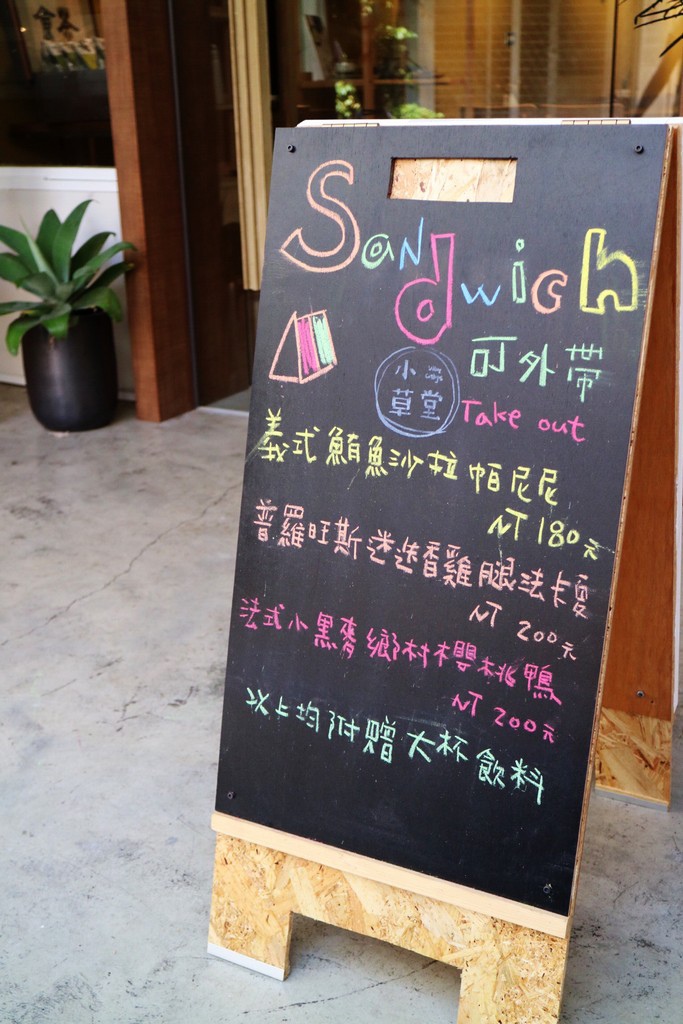 Sandwich
可外帶
小草堂
Take out
義式鮪魚沙拉帕尼尼
NT 180元
普羅旺斯迷迭香雞腿法卡夏
NT 200元
法式小黑麥鄉村櫻桃鴨
NT 200元
以上均附贈大杯飲料